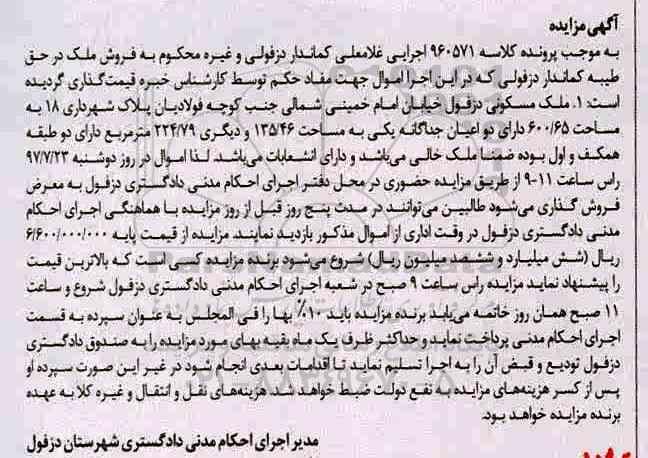 آگهی مزایده
به موجب پرونده کلاسه ۹۶۰۵۷۱ اجرایی غلامعلی کماندار دزفولی و غیره محکوم به فروش ملک در حق
طیبه کماندار دزفولی که در این اجرا اموال جهت مفاد حکم توسط کارشناس خبره قیمت‌گذاری گردیده
است: ۱. ملک مسکونی دزفول خیابان امام خمینی شمالی جنب کوچه فولادیان پلاک شهرداری ۱۸ به
مساحت ۶۰۰/۶۵ دارای دو اعیان جداگانه یکی به مساحت ۱۳۵/۴۶ و دیگری ۲۲۴/۷۹ مترمربع دارای دو طبقه
همکف و اول بوده ضمنا ملک خالی می‌باشد و دارای انشعابات می‌باشد. لذا اموال در روز دوشنبه ۹۷/۷/۲۳
راس ساعت ۱۱-۹ از طریق مزایده حضوری در محل دفتر اجرای احکام مدنی دادگستری دزفول به معرض
فروش گذاری می‌شود طالبین می‌توانند در مدت پنج روز قبل از روز مزایده با هماهنگی اجرای احکام
مدنی دادگستری دزفول در وقت اداری از اموال مذکور بازدید نمایند. مزایده از قیمت پایه ۶/۶۰۰/۰۰۰/۰۰۰
ریال (شش میلیارد و ششصد میلیون ریال) شروع می‌شود برنده مزایده کسی است که بالاترین قیمت
را پیشنهاد نماید مزایده راس ساعت ۹ صبح در شعبه اجرای احکام مدنی دادگستری دزفول شروع و ساعت
۱۱ صبح همان روز خاتمه می‌یابد برنده مزایده باید ۱۰٪ بها را فی المجلس به عنوان سپرده به قسمت
اجرای احکام مدنی پرداخت نماید و حداکثر ظرف یک ماه بقیه بهای مورد مزایده را به صندوق دادگستری
دزفول تودیع و قبض آن را به اجرا تسلیم نماید تا اقدامات بعدی انجام شود در غیر این صورت سپرده او
پس از کسر هزینه‌های مزایده به نفع دولت ضبط خواهد شد. هزینه‌های نقل و انتقال و غیره کلا به عهده
برنده مزایده خواهد بود.
مدیر اجرای احکام مدنی دادگستری شهرستان دزفول